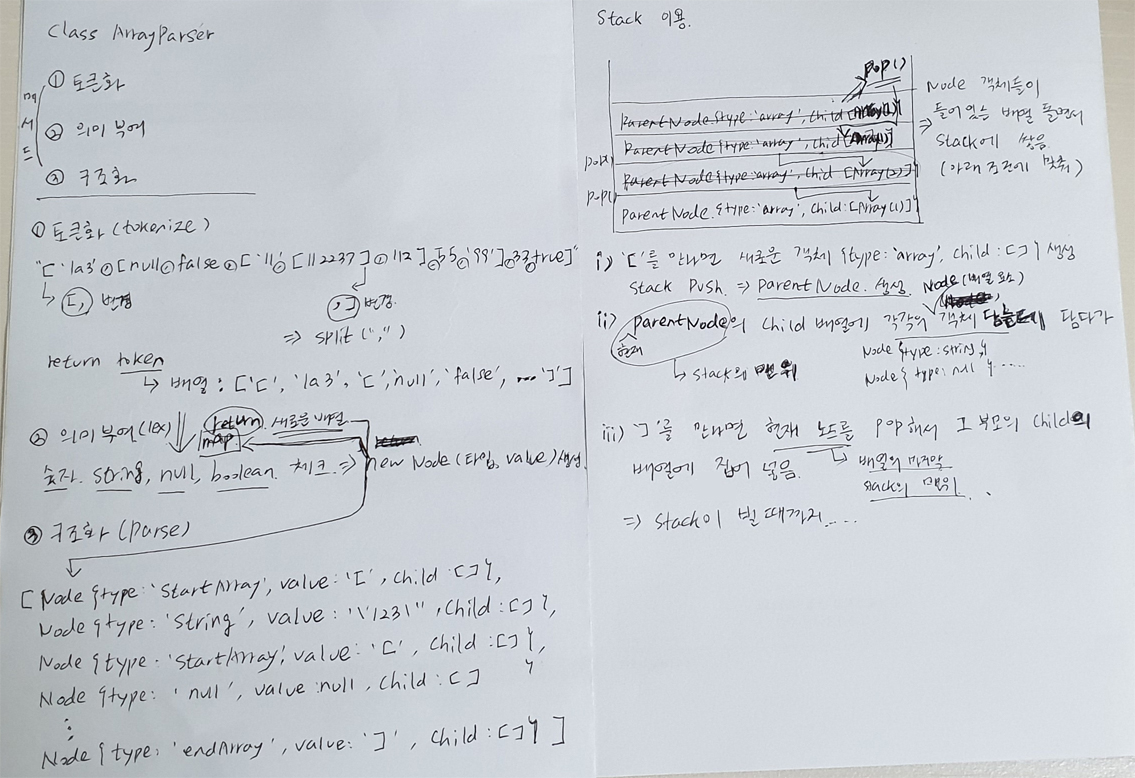 Class ArrayParser
메서드
① 토큰화
② 의미 부여
③ 구조화
① 토큰화 (tokenize)
"['1a3',[null,false,['11',[112237],112],55,'99'],33,true]"
[, 변경
,] 변경.
⇒ split(",")
return token
↳ 배열 : ['[', '1a3', '[', 'null', 'false', ... ']']
② 의미부여(lex)
return 새로운 배열
map
숫자. string, null, boolean. 체크 ⇒ new Node (타입, value) 생성.
③ 구조화 (parse)
[ Node {type: 'StartArray', value: '[', child: []},
Node {type: 'String', value: '\'123\'', child: []},
Node {type: 'StartArray', value: '[', child: []},
Node {type: 'null', value: null, child: [] }
⋮
Node {type: 'endArray', value: ']', child: []} ]
Stack 이용.
pop()
ParentNode {type: 'array', child [Array(1)]}
ParentNode {type: 'array', child [Array(1)]}
pop()
ParentNode {type: 'array', child [Array(2)]}
pop()
ParentNode. {type: 'array', child: [Array(1)]}
⇒ Node 객체들이
들어 있는 배열 돌면서
Stack에 쌓음
(아래 조건에 맞춰)
i) '['를 만나면 새로운 객체 {type: 'array', child: []} 생성
Stack push. ⇒ ParentNode. 생성.
Node(배열 요소)
ii) parentNode의 child 배열에 각각의 객체 담다가
현재
↳ Stack의 맨위
Node {type: string}
Node { type: null } .....
iii) ']'를 만나면 현재 노드를 pop해서 그 부모의 child의
배열에 집어 넣음.
↳ 배열의 마지막
stack의 맨위
⇒ Stack이 빌 때까지.....